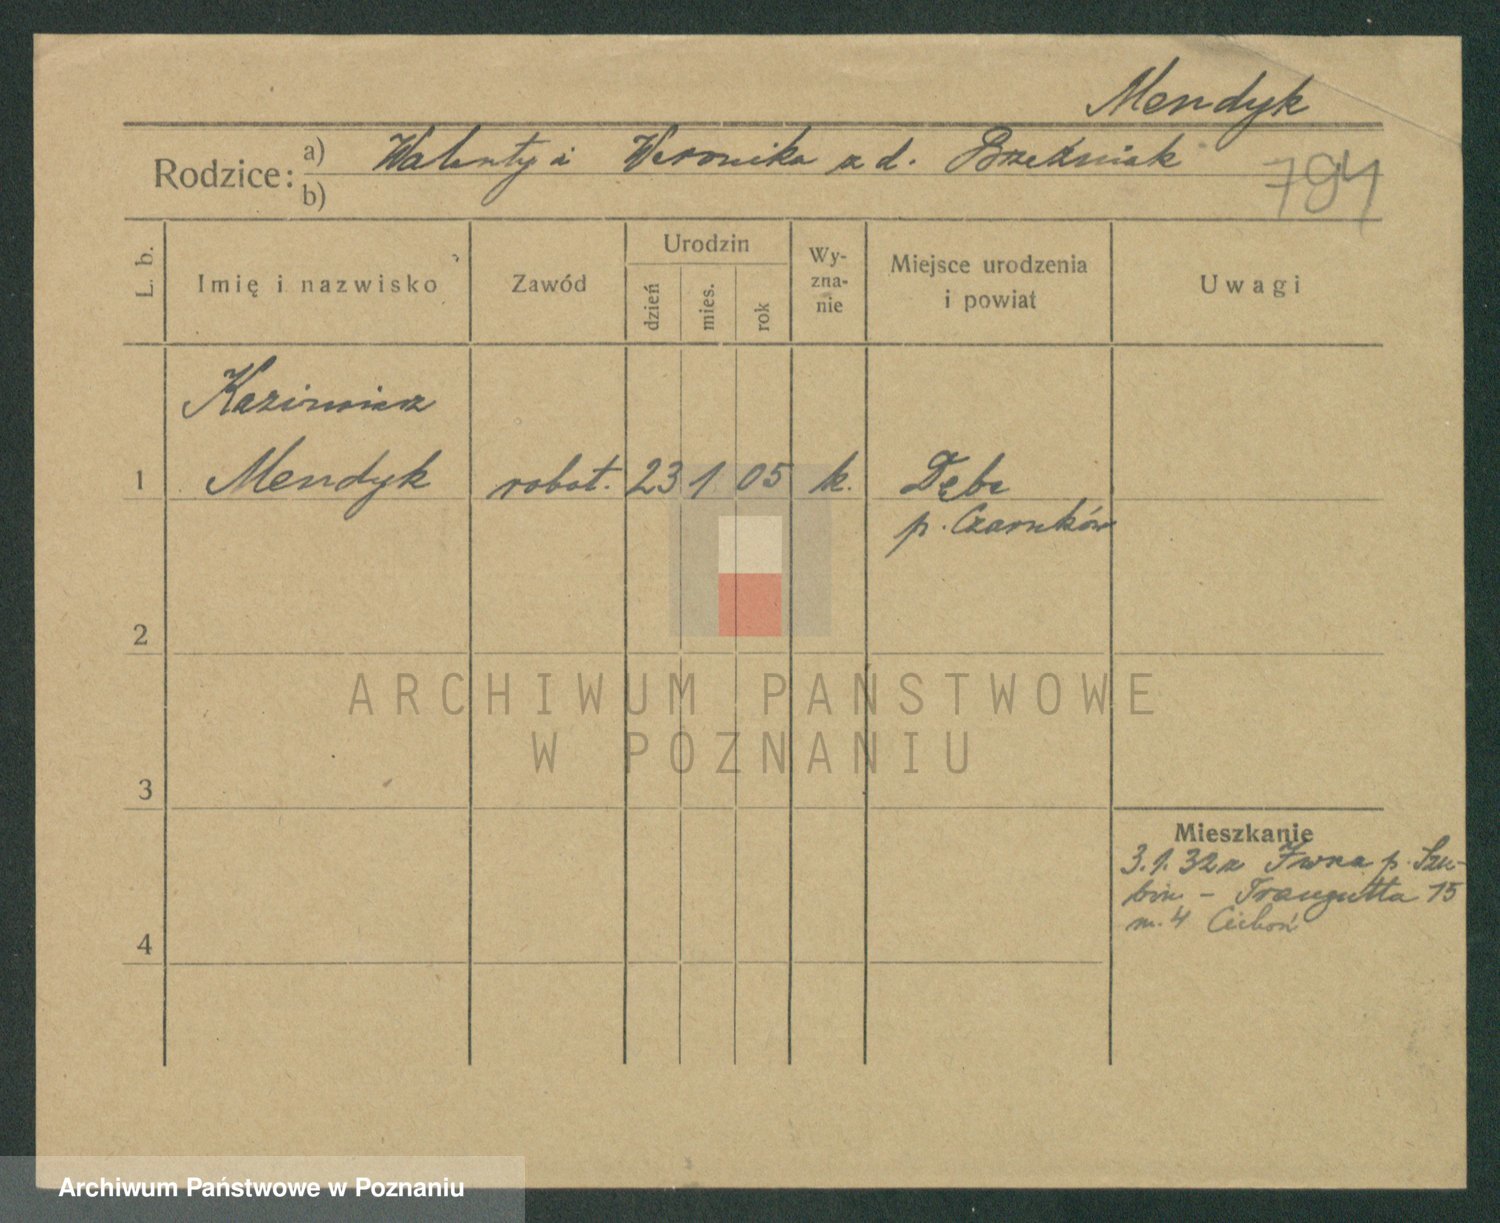 Mendyk
Rodzice: a) Walenty i Weronika z d. Brzeźniak
b)
794
L. b. Imię i nazwisko Zawód Urodzin dzień mies. rok Wy-zna-nie Miejsce urodzenia i powiat Uwagi
Kazimierz
1 Mendyk robot. 23 1 05 k. Dębe
p. Czarnków
2
ARCHIWUM PAŃSTWOWE
W POZNANIU
3
Mieszkanie
3.1.32 z Iwna p. Szu-
bin - Traugutta 15
m. 4 Cichoń
4
Archiwum Państwowe w Poznaniu